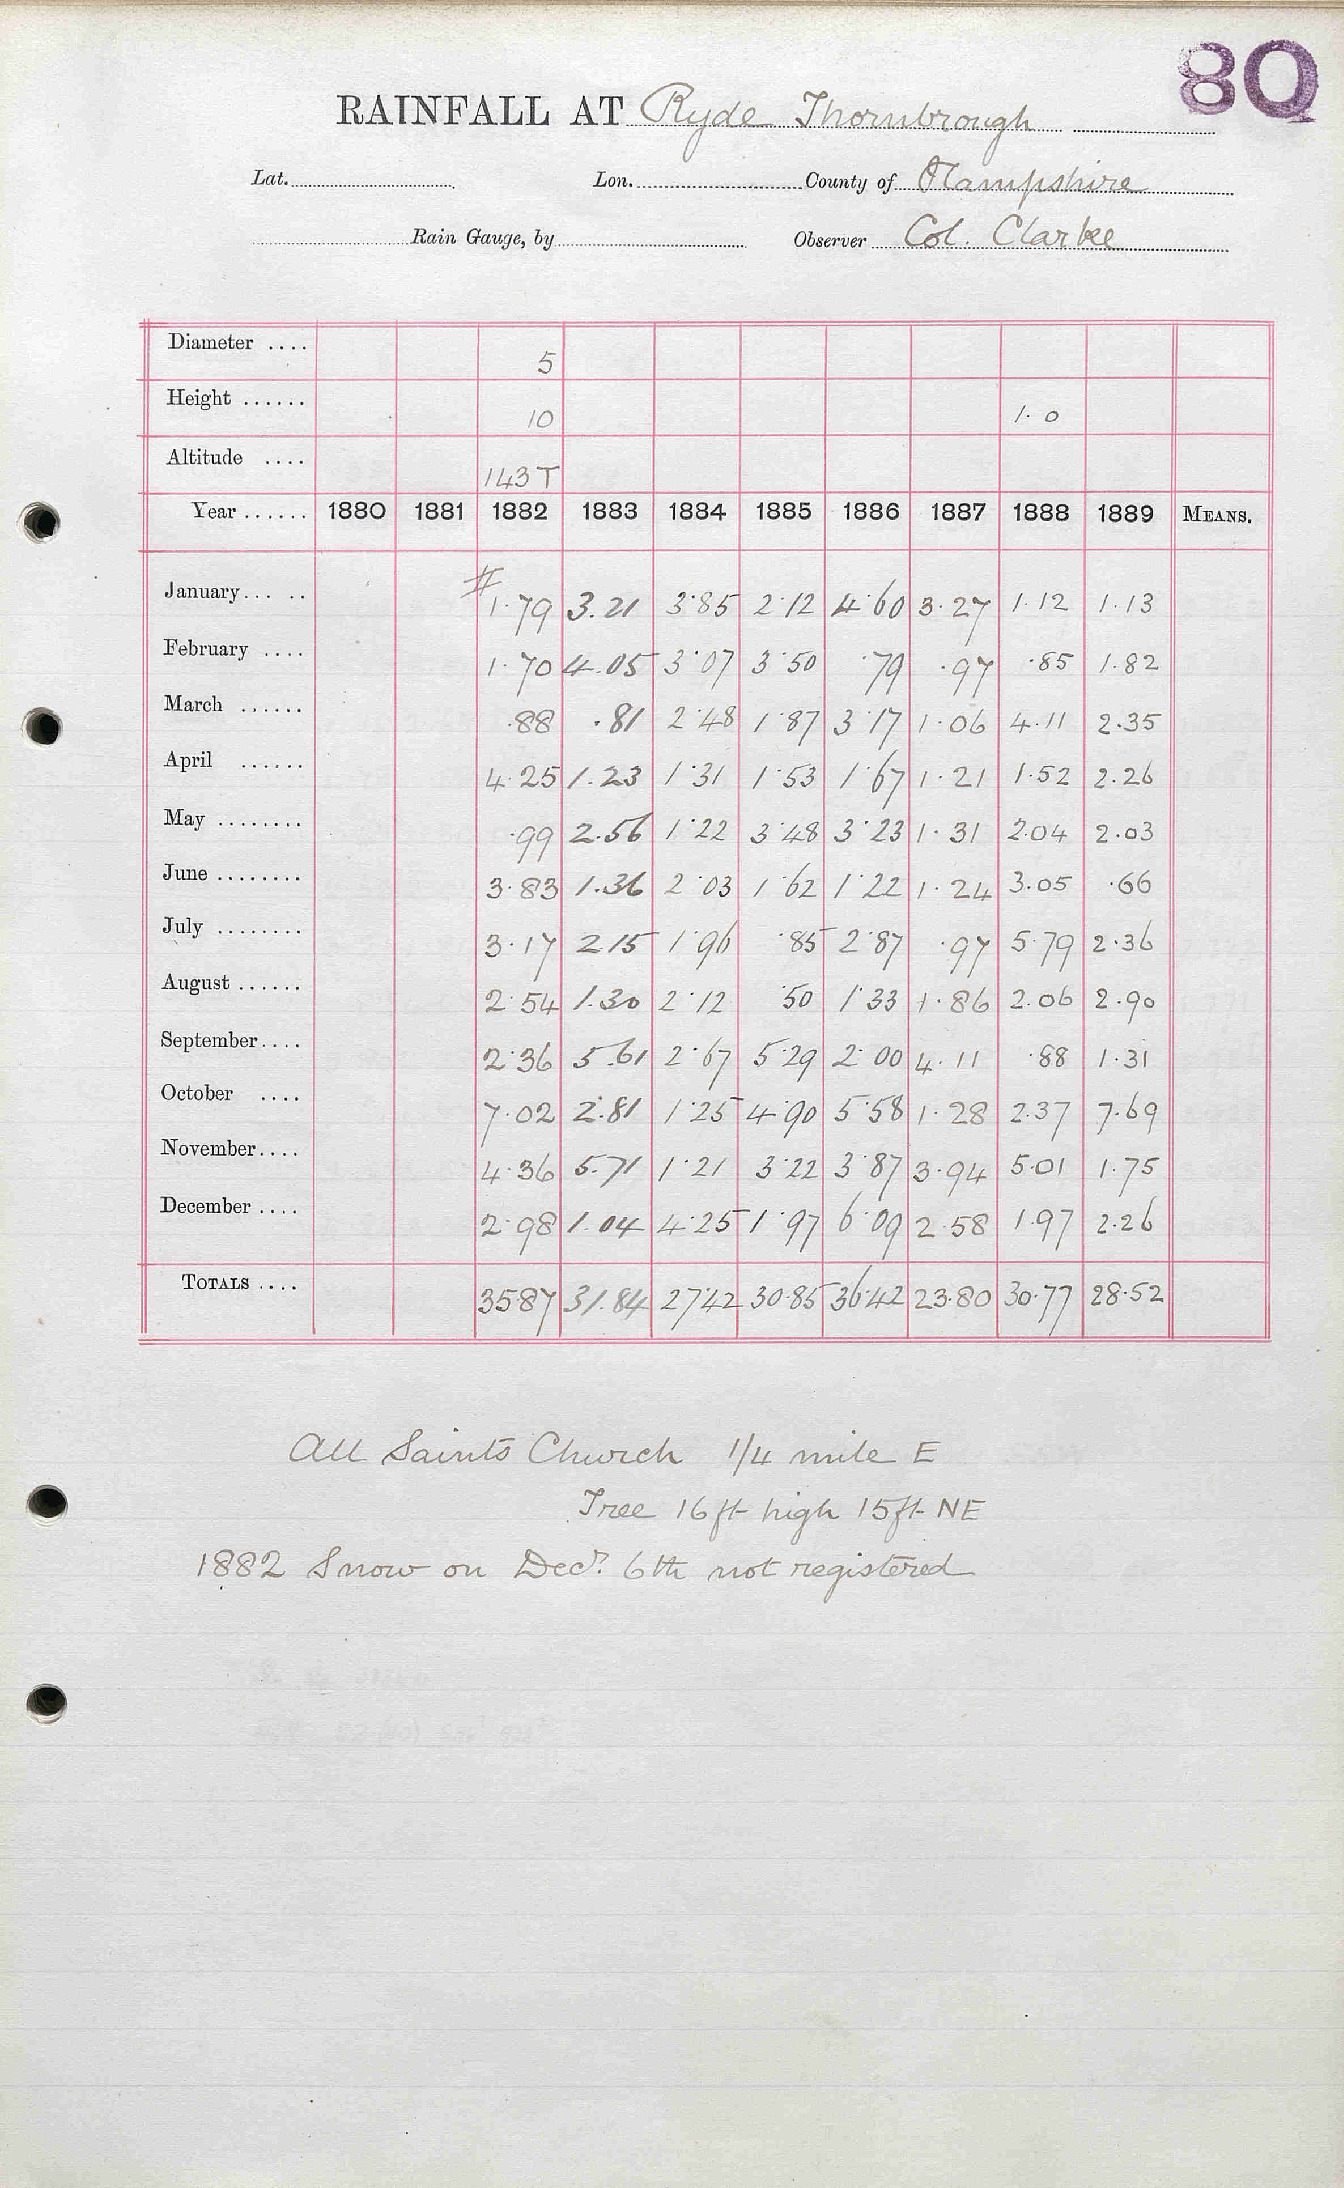 8Q
RAINFALL AT Ryde Thornbrough
Lat. Lon. County of Hampshire
Rain Gauge, by Observer Col. Clarke
Diameter .... 5
Height ...... 10 1.0
Altitude .... 143 T
Year ...... 1880 1881 1882 1883 1884 1885 1886 1887 1888 1889 MEANS.
January... .. # 1.79 3.21 3.85 2.12 4.60 3.27 1.12 1.13
February .... 1.70 4.05 3.07 3.50 .79 .97 .85 1.82
March ...... .88 .81 2.48 1.87 3.17 1.06 4.11 2.35
April ...... 4.25 1.23 1.31 1.53 1.67 1.21 1.52 2.26
May ........ .99 2.56 1.22 3.48 3.23 1.31 2.04 2.03
June ........ 3.83 1.36 2.03 1.62 1.22 1.24 3.05 .66
July ........ 3.17 2.15 1.96 .85 2.87 .97 5.79 2.36
August ...... 2.54 1.30 2.12 .50 1.33 1.86 2.06 2.90
September.... 2.36 5.61 2.67 5.29 2.00 4.11 .88 1.31
October .... 7.02 2.81 1.25 4.90 5.58 1.28 2.37 7.69
November.... 4.36 5.71 1.21 3.22 3.87 3.94 5.01 1.75
December .... 2.98 1.04 4.25 1.97 6.09 2.58 1.97 2.26
TOTALS .... 35.87 31.84 27.42 30.85 36.42 23.80 30.77 28.52
All Saints Church 1/4 mile E
Tree 16ft high 15ft NE
1882 Snow on Decr. 6th not registered